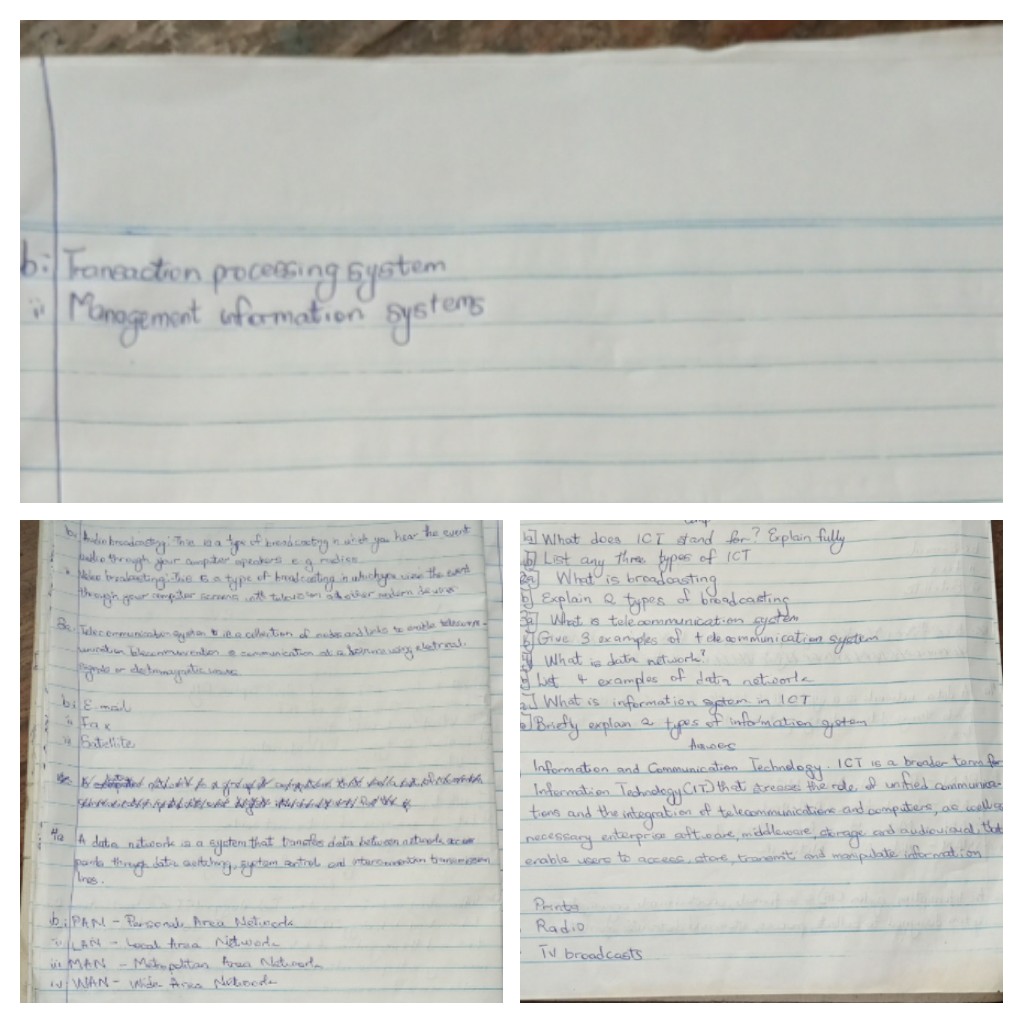 b. i Transaction processing system
ii Management information systems
b. Audio broadcasting: This is a type of broadcasting in which you hear the event
audio through your computer speakers e.g radios
Video broadcasting: This is a type of broadcasting in which you view the event
through your computer screens with television and other modern devices
3a. Telecommunication system is a collection of nodes and links to enable telecom-
munication telecommunication is communication at a distance using electrical
signals or electromagnetic waves
b. i E-mail
ii Fax
iii Satellite
4a A data network is a system that transfers data between network access
points through data switching, system control and interconnection transmission
lines.
b. i PAN - Personal Area Network
ii LAN - Local Area Network
iii MAN - Metropolitan Area Network
iv WAN - Wide Area Network
1a] What does ICT stand for? Explain fully
b] List any three types of ICT
2a] What is broadcasting
b] Explain 2 types of broadcasting
3a] What is telecommunication system
b] Give 3 examples of telecommunication system
What is data network?
b] List 4 examples of data network
What is information system in ICT
Briefly explain 2 types of information system
Information and Communication Technology. ICT is a broader term for
Information Technology (IT) that stresses the role of unified communica-
tions and the integration of telecommunications and computers, as well as
necessary enterprise software, middleware, storage and audiovisual, that
enable users to access, store, transmit and manipulate information
Radio
TV broadcasts